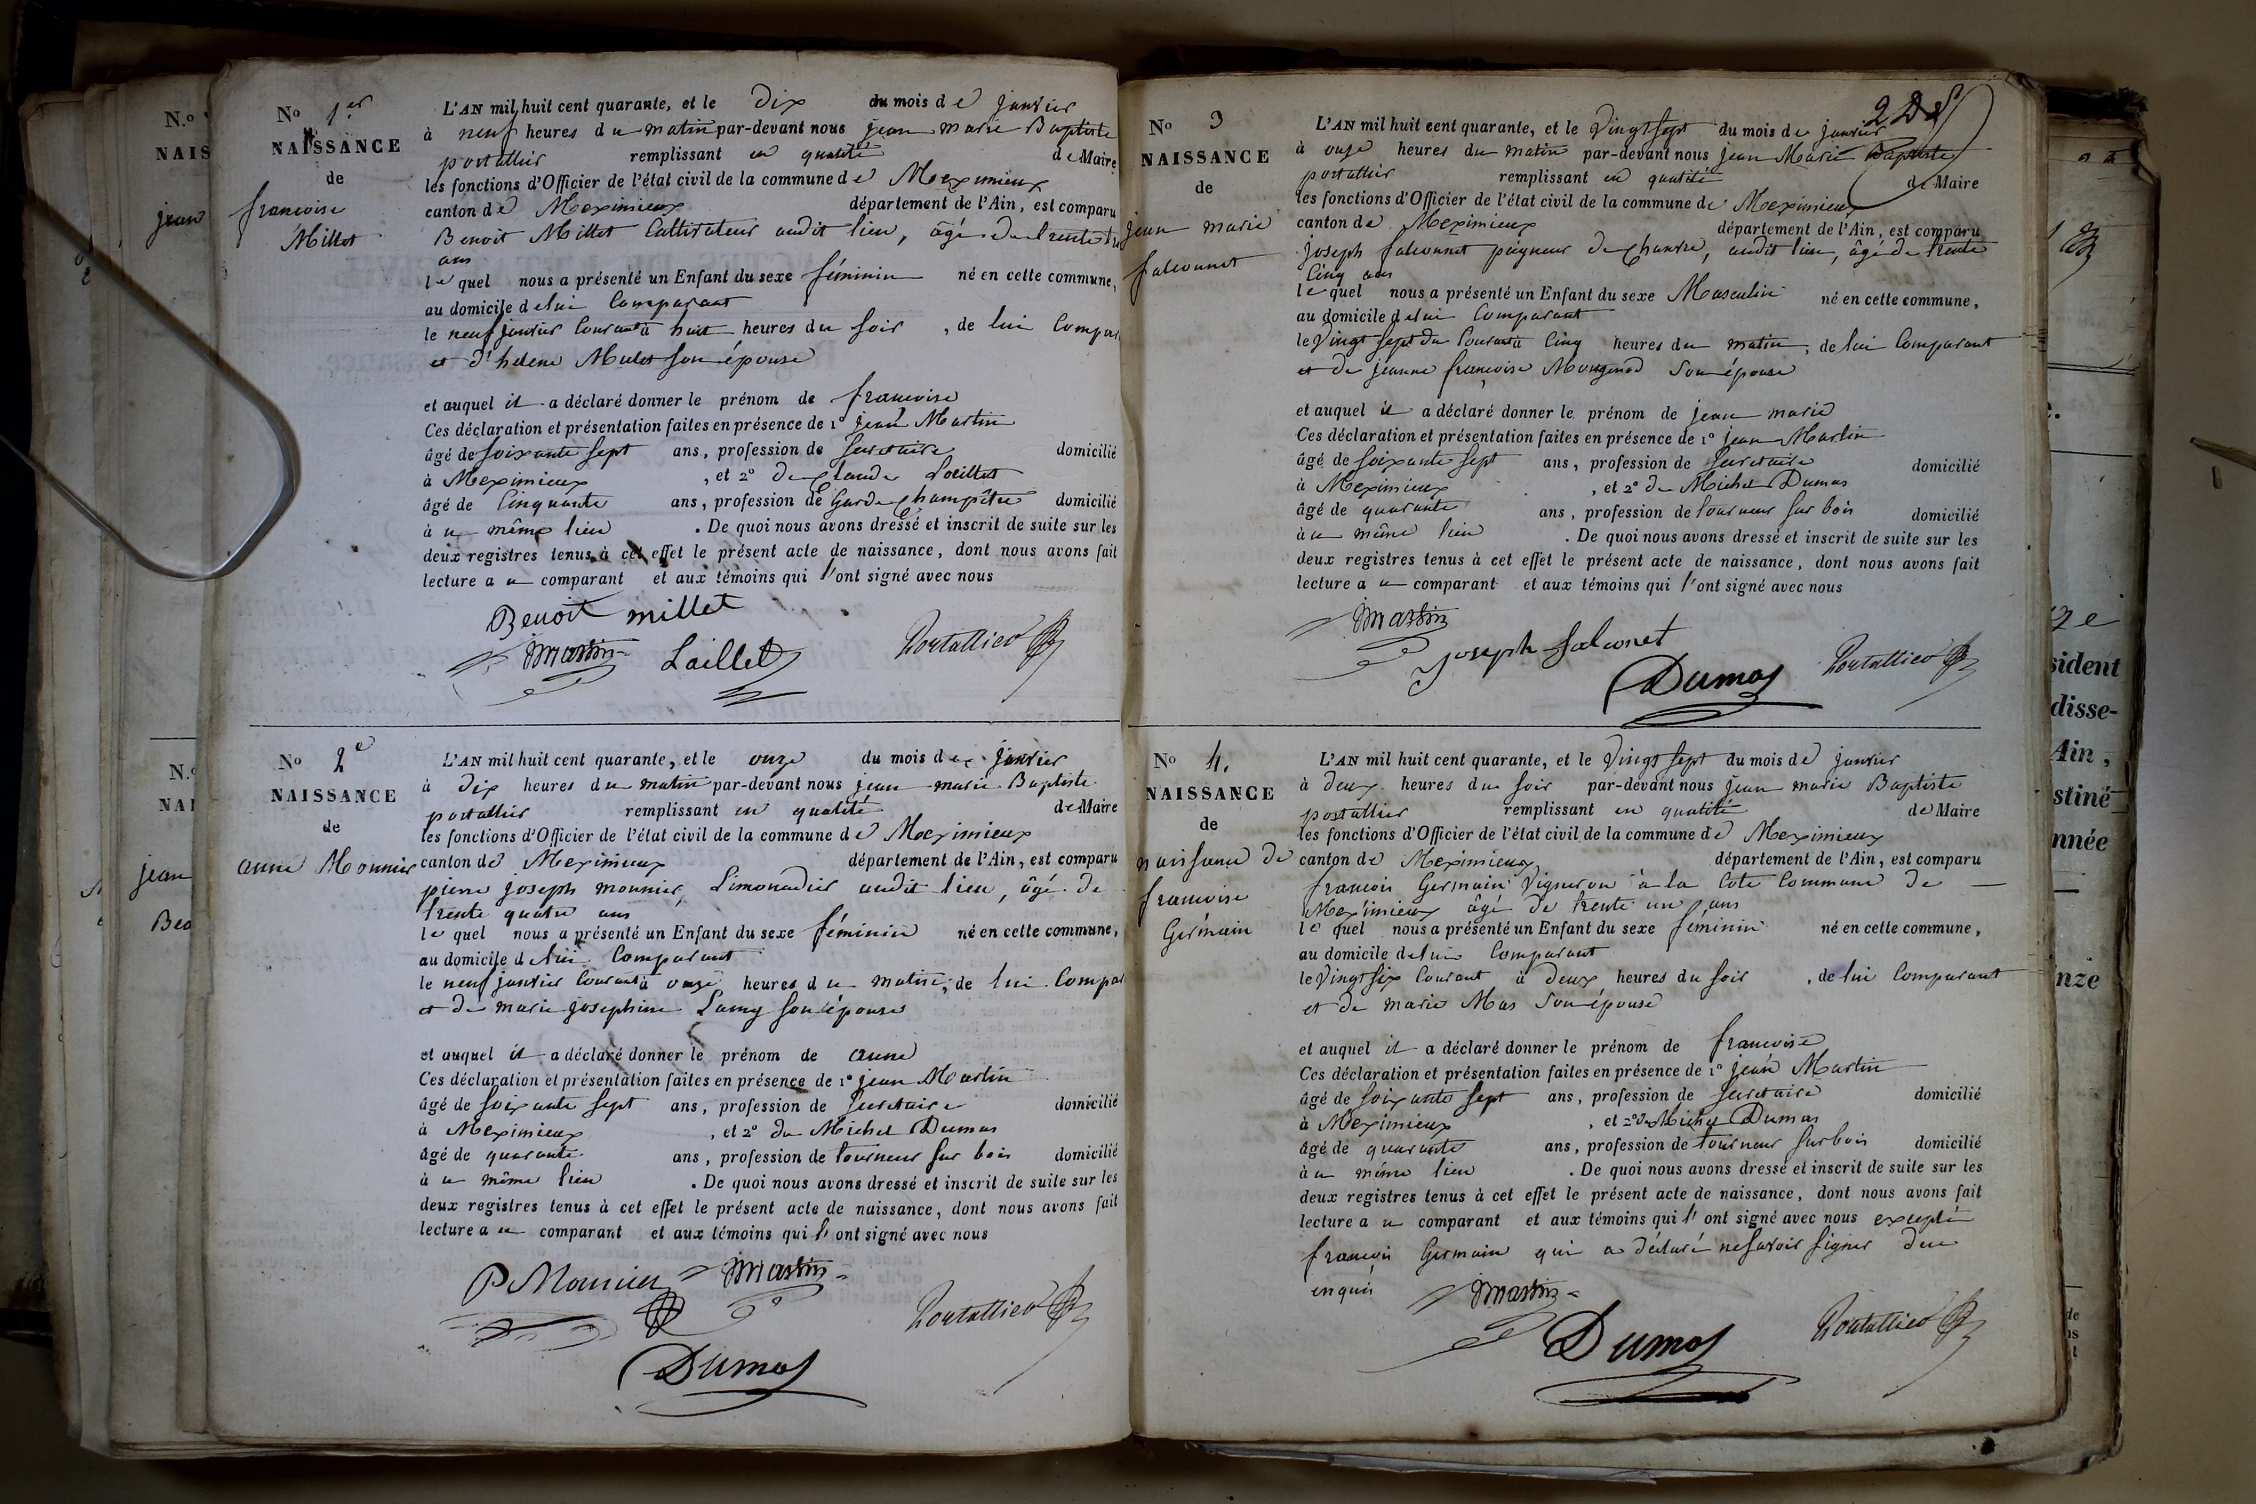 No 1er
NAISSANCE
de
francoise
Millet
L'AN mil huit cent quarante, et le dix du mois de janvier
à neuf heures du matin par-devant nous jean marie Baptiste
portallier remplissant en qualité de Maire
les fonctions d'Officier de l'état civil de la commune de Meximieux
canton de Meximieux département de l'Ain, est comparu
Benoit Millet Cultivateur audit lieu, âgé de trente
ans
le quel nous a présenté un Enfant du sexe féminin né en cette commune,
au domicile de lui Comparant
le neuf janvier Courant à huit heures du soir, de lui Compar
et d'helene Mulet son épouse
et auquel il a déclaré donner le prénom de francoise
Ces déclaration et présentation faites en présence de 1° jean Martin
âgé de soixante sept ans, profession de Secretaire domicilié
à Meximieux, et 2° de Claude Laillet
âgé de Cinquante ans, profession de Garde Champêtre domicilié
à u même lieu. De quoi nous avons dressé et inscrit de suite sur les
deux registres tenus à cet effet le présent acte de naissance, dont nous avons fait
lecture a u comparant et aux témoins qui l'ont signé avec nous
Benoit millet
jmartin Laillet Portallier
No 2e
NAISSANCE
de
anne Monnier
L'AN mil huit cent quarante, et le onze du mois de janvier
à dix heures du matin par-devant nous jean marie Baptiste
portallier remplissant en qualité de Maire
les fonctions d'Officier de l'état civil de la commune de Meximieux
canton de Meximieux département de l'Ain, est comparu
pierre joseph monnier, Limonadier audit lieu, âgé de
trente quatre ans
le quel nous a présenté un Enfant du sexe féminin né en cette commune,
au domicile de lui Comparant
le neuf janvier Courant à onze heures du matin, de lui Compar
et de marie josephine Lamy son épouse
et auquel il a déclaré donner le prénom de anne
Ces déclaration et présentation faites en présence de 1° jean Martin
âgé de soixante sept ans, profession de Secretaire domicilié
à Meximieux, et 2° de Michel Dumas
âgé de quarante ans, profession de tourneur sur bois domicilié
à u même lieu. De quoi nous avons dressé et inscrit de suite sur les
deux registres tenus à cet effet le présent acte de naissance, dont nous avons fait
lecture a u comparant et aux témoins qui l'ont signé avec nous
P Monnier jmartin
Portallier
Dumas
No 3
NAISSANCE
de
jean marie
falconnet
L'AN mil huit cent quarante, et le Vingt sept du mois de janvier
à onze heures du matin par-devant nous jean Marie Baptiste
portallier remplissant en qualité de Maire
les fonctions d'Officier de l'état civil de la commune de Meximieux
canton de Meximieux département de l'Ain, est comparu
joseph falconnet peigneur de Chanvre, audit lieu, âgé de trente
Cinq ans
le quel nous a présenté un Enfant du sexe Masculin né en cette commune,
au domicile de lui Comparant
le Vingt sept du Courant à Cinq heures du matin, de lui Comparant
et de jeanne françoise Mongenod Son épouse
et auquel il a déclaré donner le prénom de jean marie
Ces déclaration et présentation faites en présence de 1° jean Martin
âgé de soixante sept ans, profession de Secretaire domicilié
à Meximieux, et 2° de Michel Dumas
âgé de quarante ans, profession de tourneur sur bois domicilié
à u même lieu. De quoi nous avons dressé et inscrit de suite sur les
deux registres tenus à cet effet le présent acte de naissance, dont nous avons fait
lecture a u comparant et aux témoins qui l'ont signé avec nous
jmartin
joseph falconet Portallier
Dumas
No 4.
NAISSANCE
de
naissance de
francoise
Germain
L'AN mil huit cent quarante, et le Vingt sept du mois de janvier
à deux heures du soir par-devant nous jean marie Baptiste
portallier remplissant en qualité de Maire
les fonctions d'Officier de l'état civil de la commune de Meximieux
canton de Meximieux département de l'Ain, est comparu
francois Germain Vigneron à la Cote Commune de
Meximieux âgé de trente un ans
le quel nous a présenté un Enfant du sexe féminin né en cette commune,
au domicile de lui Comparant
le Vingt six Courant à deux heures du soir, de lui Comparant
et de marie Mas Son épouse
et auquel il a déclaré donner le prénom de francoise
Ces déclaration et présentation faites en présence de 1° jean Martin
âgé de soixante sept ans, profession de Secretaire domicilié
à Meximieux, et 2° de Michel Dumas
âgé de quarante ans, profession de tourneur sur bois domicilié
à u même lieu. De quoi nous avons dressé et inscrit de suite sur les
deux registres tenus à cet effet le présent acte de naissance, dont nous avons fait
lecture a u comparant et aux témoins qui l'ont signé avec nous excepté
francois Germain qui a déclaré ne savoir signer de ce
enquis
jmartin
Dumas Portallier
N.o
NAIS
jean
N.o
NAI
jean
Bea
sident
disse-
Ain,
stiné
nnée
nze